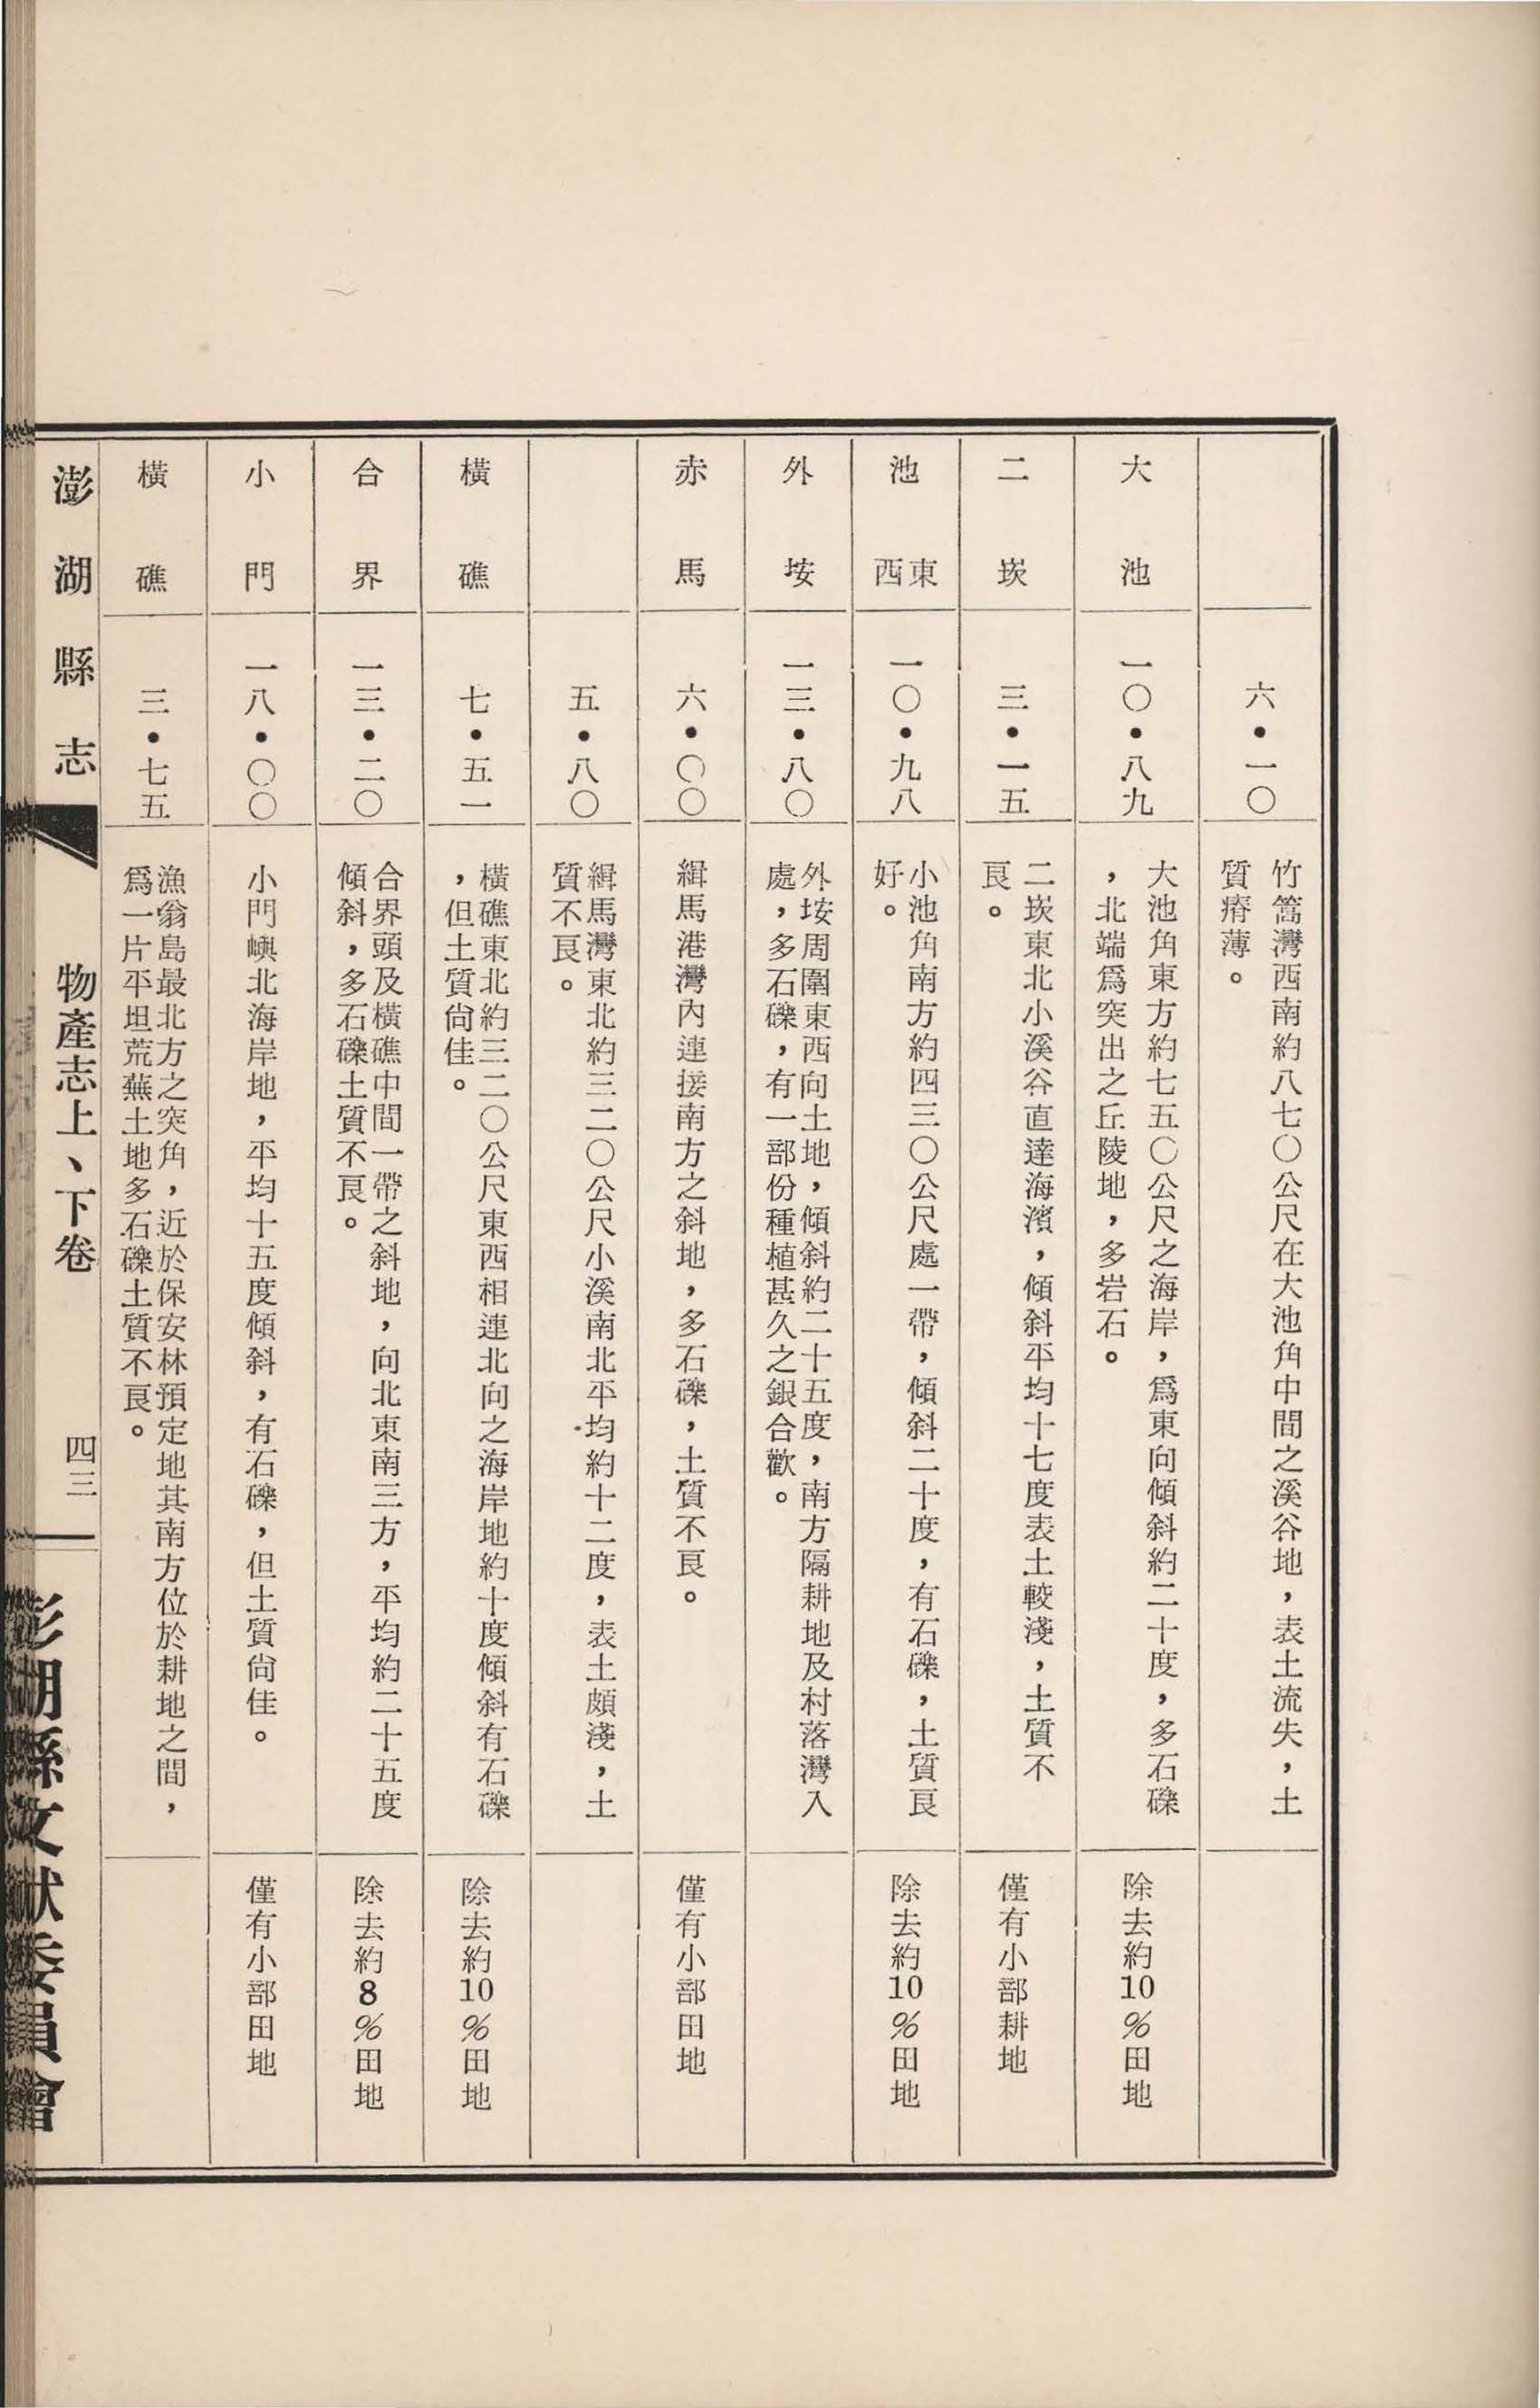 六•一〇
竹篙灣西南約八七〇公尺在大池角中間之溪谷地，表土流失，土
質瘠薄。
大池
一〇•八九
大池角東方約七五〇公尺之海岸，爲東向傾斜約二十度，多石礫
，北端爲突出之丘陵地，多岩石。
除去約10%田地
二崁
三•一五
二崁東北小溪谷直達海濱，傾斜平均十七度表土較淺，土質不
良。
僅有小部耕地
池東
西
一〇•九八
小池角南方約四三〇公尺處一帶，傾斜二十度，有石礫，土質良
好。
除去約10%田地
外垵
一三•八〇
外垵周圍東西向土地，傾斜約二十五度，南方隔耕地及村落灣入
處，多石礫，有一部份種植甚久之銀合歡。
赤馬
六•〇〇
緝馬港灣內連接南方之斜地，多石礫，土質不良。
僅有小部田地
五•八〇
緝馬灣東北約三二〇公尺小溪南北平均約十二度，表土頗淺，土
質不良。
橫礁
七•五一
橫礁東北約三二〇公尺東西相連北向之海岸地約十度傾斜有石礫
，但土質尙佳。
除去約10%田地
合界
一三•二〇
合界頭及橫礁中間一帶之斜地，向北東南三方，平均約二十五度
傾斜，多石礫土質不良。
除去約8%田地
小門
一八•〇〇
小門嶼北海岸地，平均十五度傾斜，有石礫，但土質尙佳。
僅有小部田地
橫礁
三•七五
漁翁島最北方之突角，近於保安林預定地其南方位於耕地之間，
爲一片平坦荒蕪土地多石礫土質不良。
澎湖縣志
物產志上、下卷
四三
澎湖縣文獻委員會